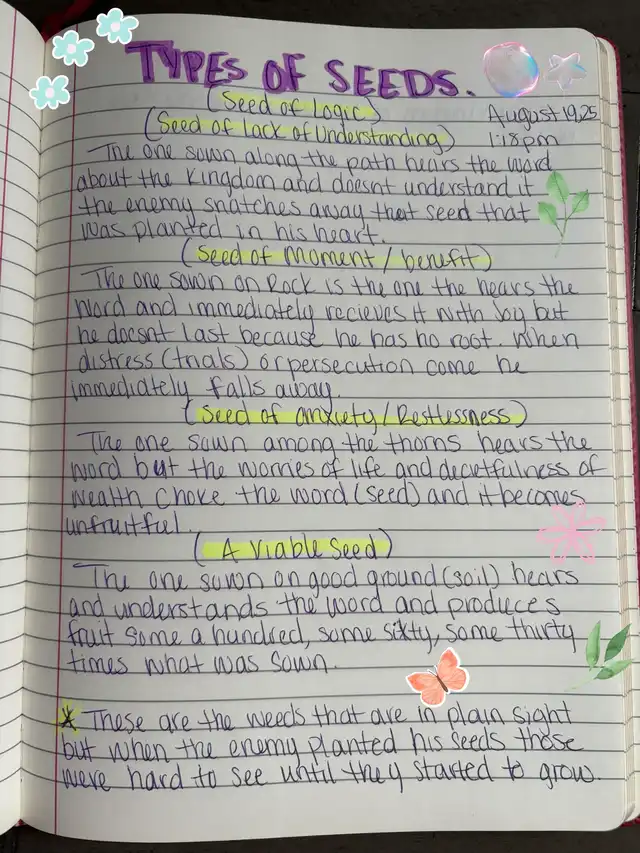 TYPES OF SEEDS.
(Seed of Logic)
August 19, 25
(Seed of lack of Understanding)
1:18pm
The one sown along the path hears the word
about the Kingdom and doesnt understand it
the enemy snatches away that seed that
was planted in his heart.
(Seed of Moment/benefit)
The one sown on Rock is the one the hears the
Word and immediately recieves it with Joy but
he doesnt last because he has no root. When
distress (trials) or persecution come he
immediately falls away.
(Seed of anxiety/Restlessness)
The one sown among the thorns hears the
word but the worries of life and deceitfulness of
wealth choke the word (seed) and it becomes
unfruitful.
(A Viable Seed)
The one sown on good ground (soil) hears
and understands the word and produces
fruit some a hundred, some sixty, some thirty
times what was sown.
* These are the weeds that are in plain sight
but when the enemy planted his seeds those
were hard to see until they started to grow.